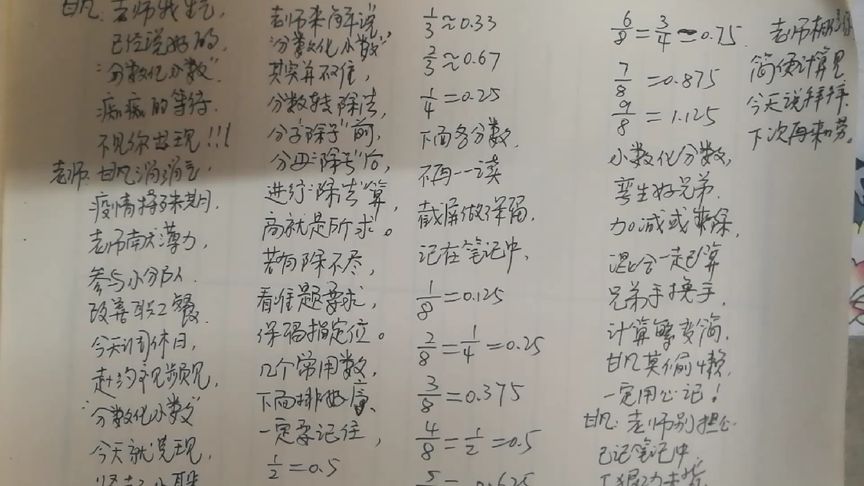 甘凡:老师我生气,
已经说好的,
“分数化小数”
痴痴的等待.
不见你出现!!!
老师:甘凡消消气,
疫情特殊期.
老师献薄力,
参与小分队.
改善职工餐.
今天周休日,
赴约来视频见,
“分数化小数”
今天就兑现,
老师来解说,
“分数化小数”
其实并不难,
分数转除法,
分子“除号”前,
分母“除号”后,
进行“除法”算,
商就是所求。
若有除不尽,
看准题要求,
保留指定位。
几个常用数,
下面排好序,
一定要记住,
1/2=0.5
1/3≈0.33
2/3≈0.67
1/4=0.25
下面各分数.
不再一一读
截屏做保留.
记在笔记中.
1/8=0.125
2/8=1/4=0.25
3/8=0.375
4/8=1/2=0.5
5/8=0.625
6/8=3/4=0.75
7/8=0.875
9/8=1.125
小数化分数,
孪生好兄弟.
加减或乘除,
混合一起算
兄弟手换手.
计算要变简.
甘凡莫偷懒.
一定用心记!
甘凡:老师别担心
已记笔记中.
简便计算见
今天说拜拜.
下次再来劳.